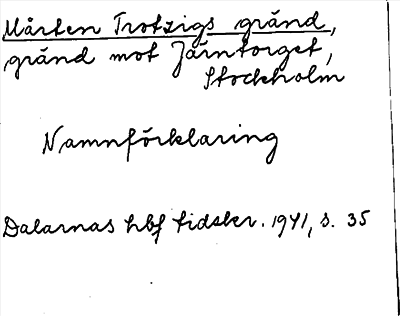 Mårten Trotzigs gränd,
gränd mot Järntorget,
Stockholm
Namnförklaring
Dalarnas hbf tidskr. 1941, s. 35